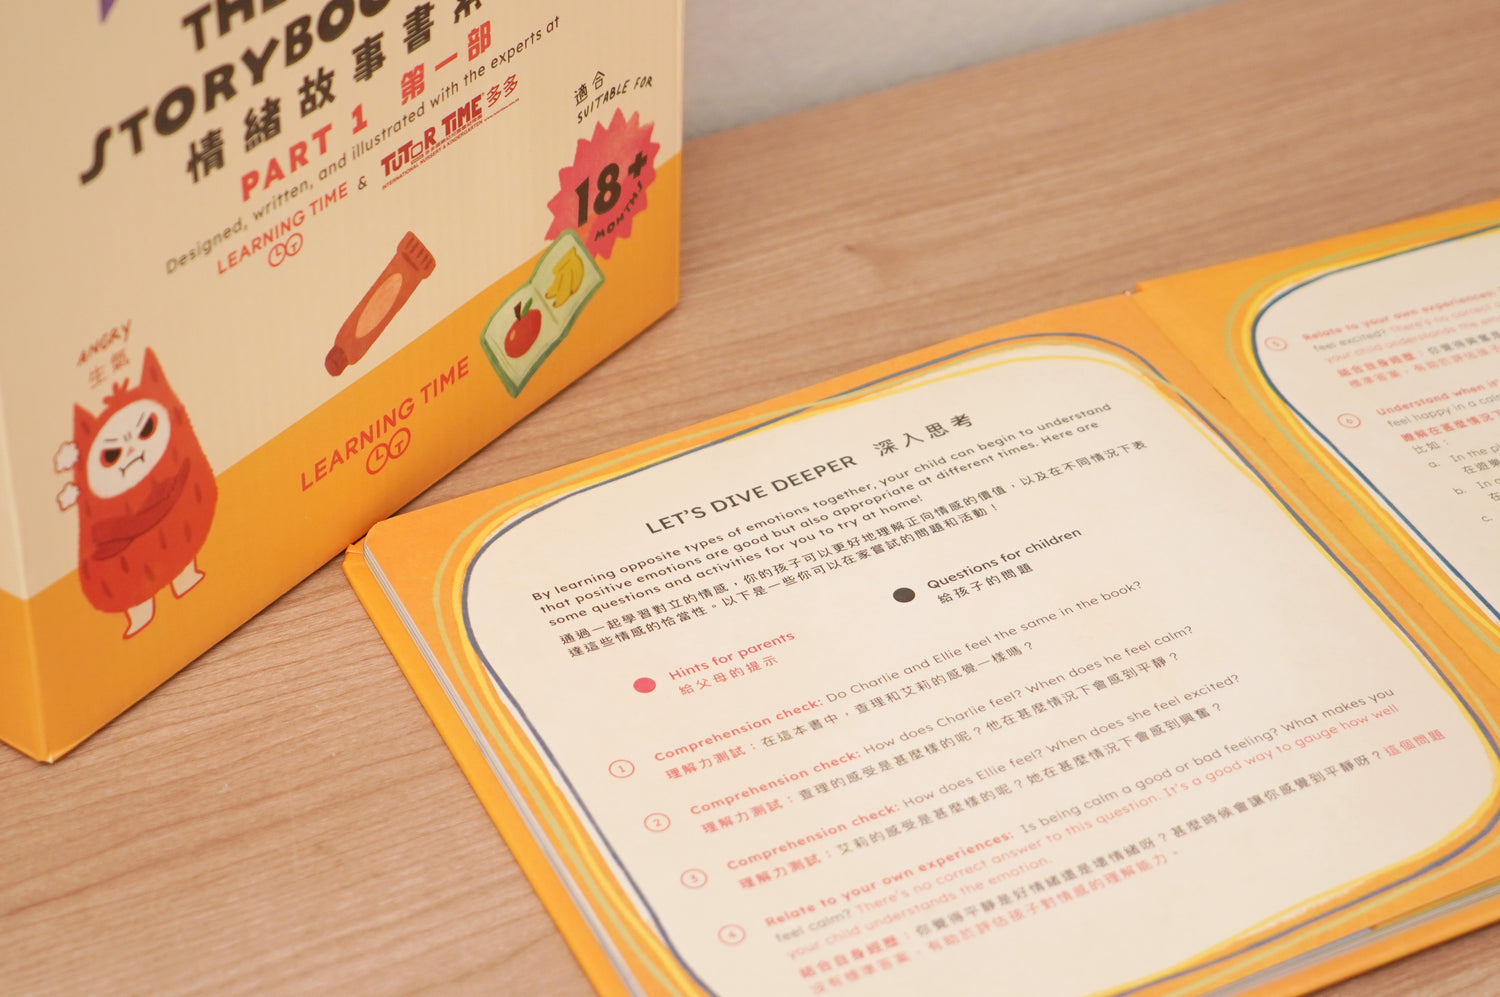 THE
STORYBOO
情緒故事書系
PART 1 第一部
Designed, written, and illustrated with the experts at
LEARNING TIME & TUTOR TIME 多多
INTERNATIONAL NURSERY & KINDERGARTEN
LT
適合
SUITABLE FOR
18+
MONTHS
ANGRY
生氣
LEARNING TIME
LT
LET'S DIVE DEEPER 深入思考
By learning opposite types of emotions together, your child can begin to understand
that positive emotions are good but also appropriate at different times. Here are
some questions and activities for you to try at home!
通過一起學習對立的情感，你的孩子可以更好地理解正向情感的價值，以及在不同情況下表
達這些情感的恰當性。以下是一些你可以在家嘗試的問題和活動！
Hints for parents
給父母的提示
Questions for children
給孩子的問題
1 Comprehension check: Do Charlie and Ellie feel the same in the book?
理解力測試：在這本書中，查理和艾莉的感覺一樣嗎？
2 Comprehension check: How does Charlie feel? When does he feel calm?
理解力測試：查理的感受是甚麼樣的呢？他在甚麼情況下會感到平靜？
3 Comprehension check: How does Ellie feel? When does she feel excited?
理解力測試：艾莉的感受是甚麼樣的呢？她在甚麼情況下會感到興奮？
4 Relate to your own experiences: Is being calm a good or bad feeling? What makes you
feel calm? There's no correct answer to this question. It's a good way to gauge how well
your child understands the emotion.
結合自身經歷：你覺得平靜是好情緒還是壞情緒呀？甚麼時候會讓你感覺到平靜呀？這個問題
沒有標準答案，有助於評估孩子對情感的理解能力。
5 Relate to your own experiences:
feel excited? There's no correct
your child understands the em
結合自身經歷：你覺得興奮是
標準答案，有助於評估孩子
6 Understand when it
feel happy in a calm
瞭解在甚麼情況下
比如：
a. In the pl
在遊樂
b. In a
在
c.